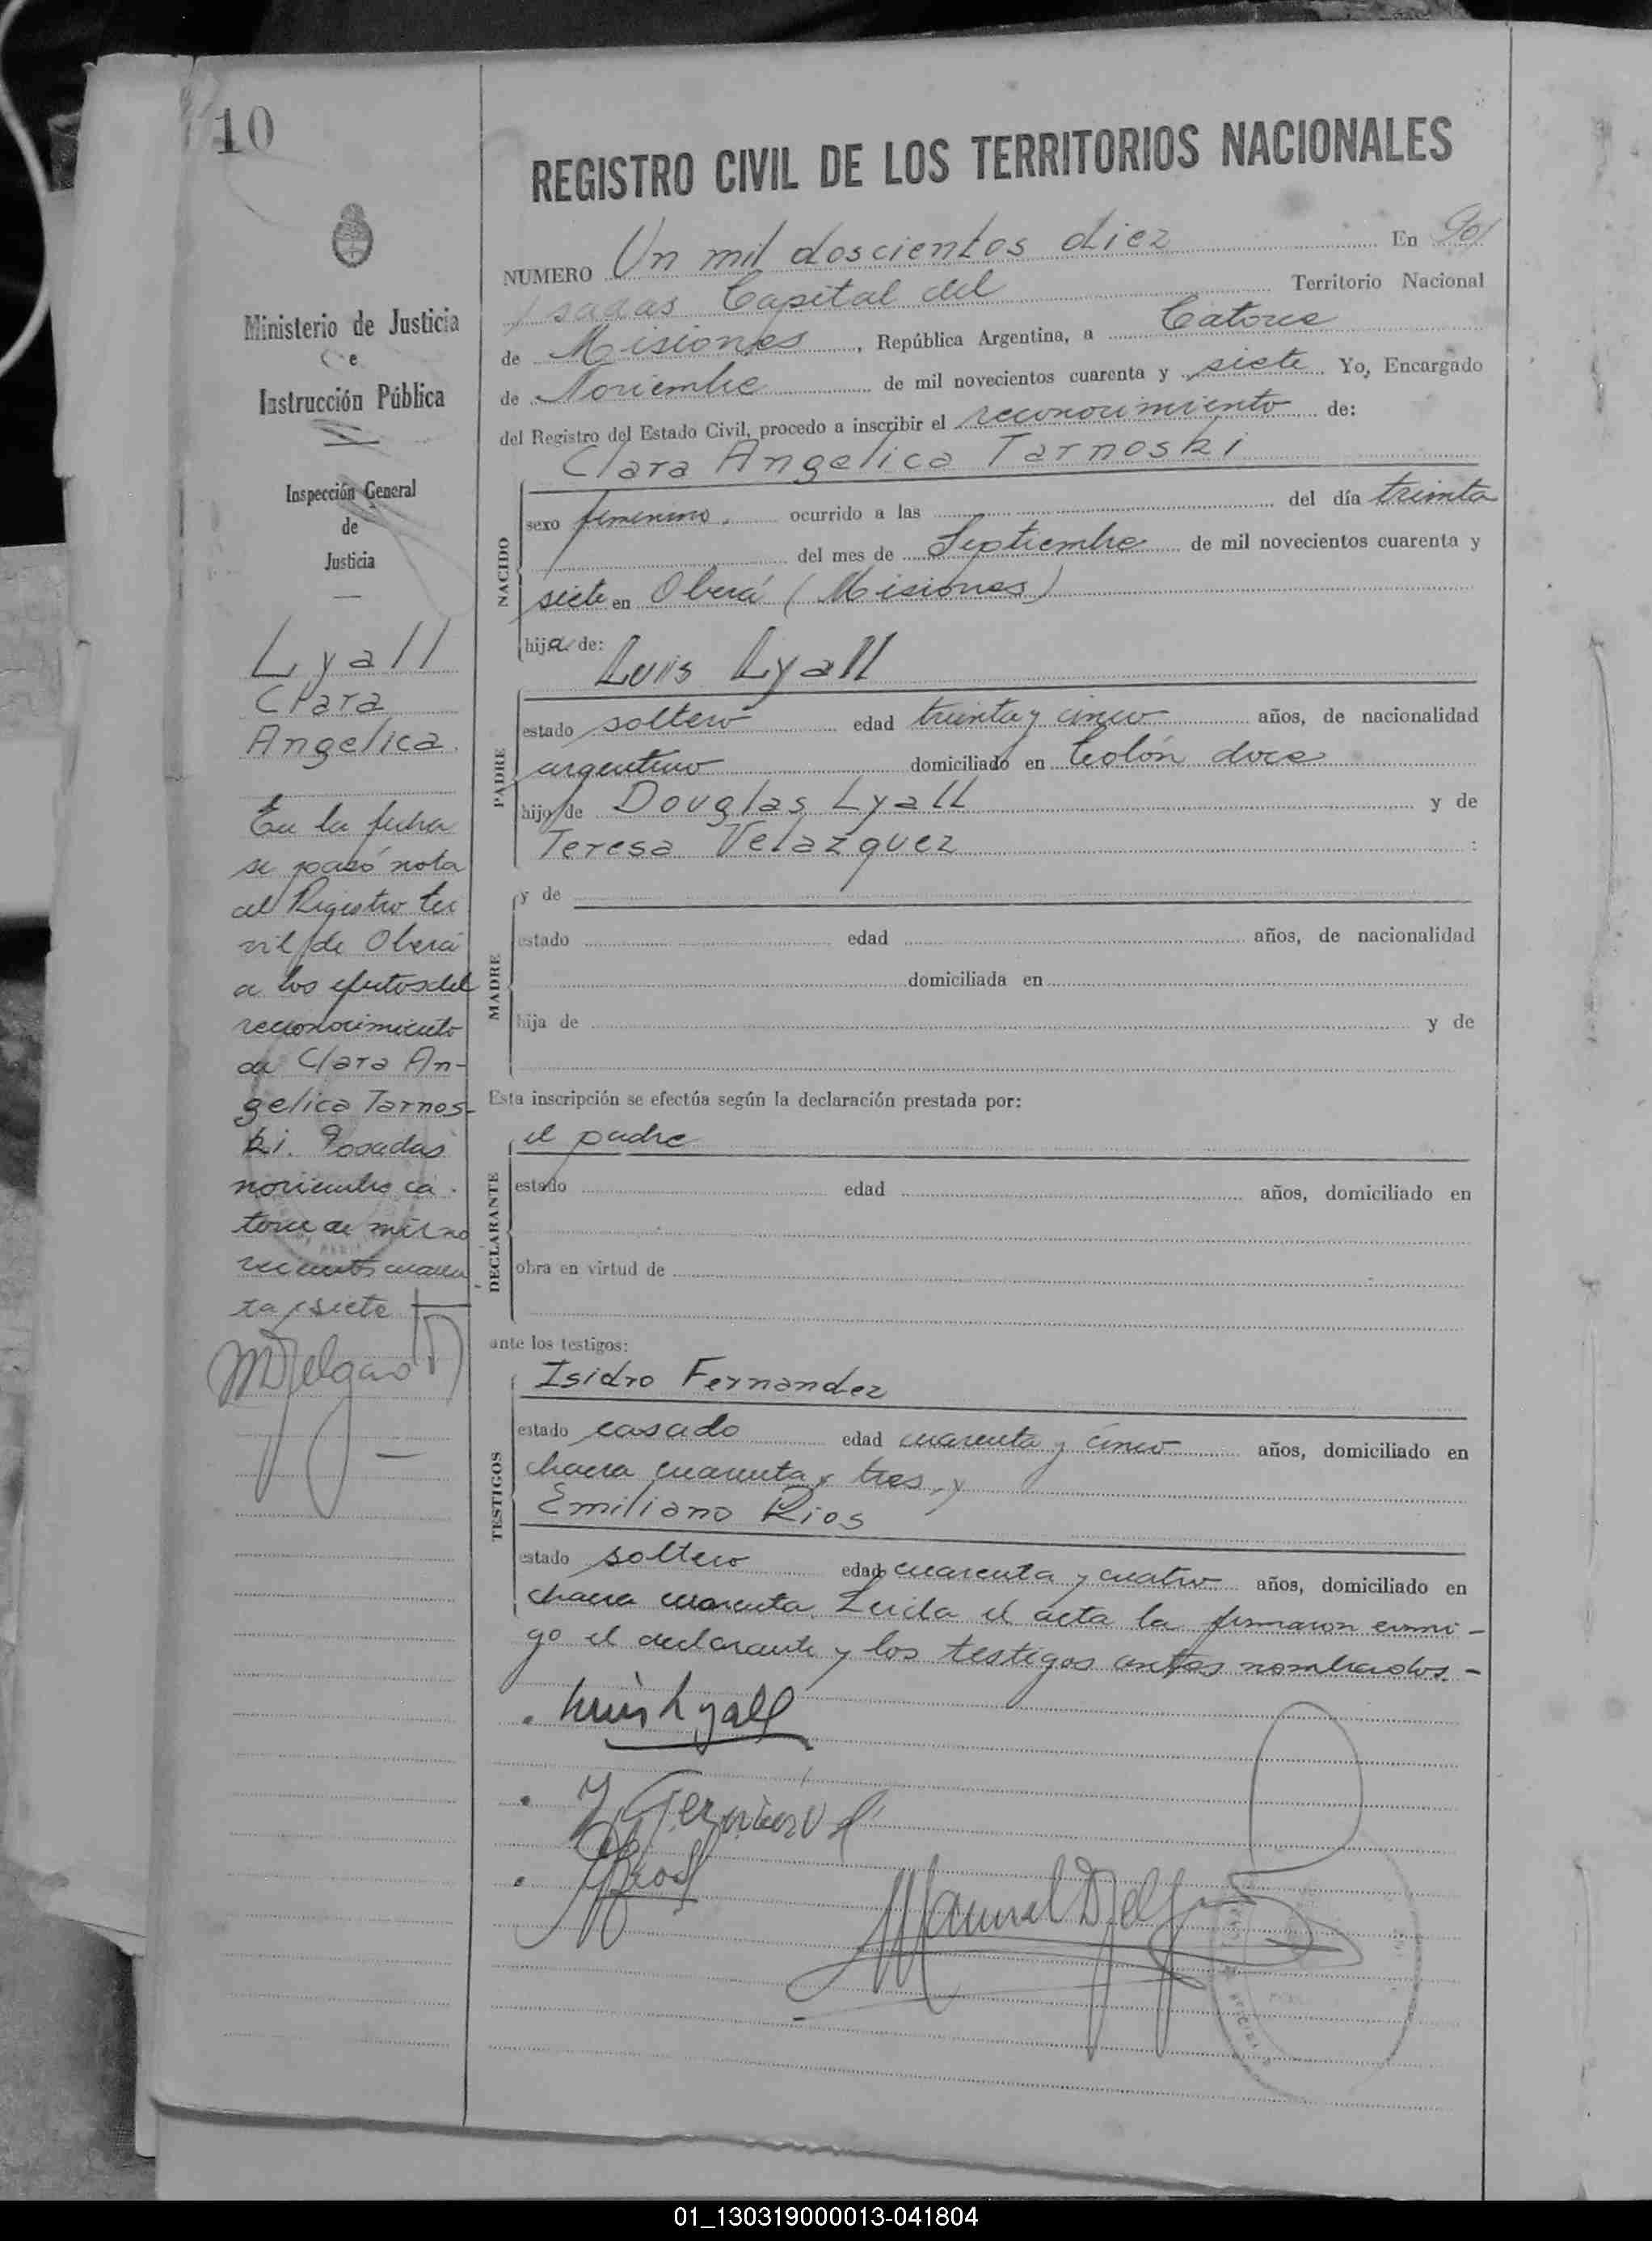 10
Ministerio de Justicia
e
Instrucción Pública
Inspección General
de
Justicia
Lyall
Clara
Angelica
En la fecha
se pasó nota
al Registro Ci
vil de Oberá
a los efectos del
reconocimiento
de Clara An-
gelica Tarnos-
ki. Posadas
noviembre ca-
torce de mil no
vecientos cuaren
ta y siete
MDelgado
REGISTRO CIVIL DE LOS TERRITORIOS NACIONALES
NUMERO Un mil doscientos diez En Po
sadas Capital del Territorio Nacional
de Misiones, República Argentina, a Catorce
de Noviembre de mil novecientos cuarenta y siete Yo, Encargado
del Registro del Estado Civil, procedo a inscribir el reconocimiento de:
Clara Angelica Tarnoski
NACIDO
sexo femenino. ocurrido a las del día treinta
del mes de Septiembre de mil novecientos cuarenta y
siete en Oberá (Misiones)
hija de:
Luis Lyall
PADRE
estado soltero edad treinta y cinco años, de nacionalidad
argentino domiciliado en Colón doce
hijo de Douglas Lyall y de
Teresa Velazquez :
MADRE
y de
estado edad años, de nacionalidad
domiciliada en
hija de y de
Esta inscripción se efectúa según la declaración prestada por:
DECLARANTE
el padre
estado edad años, domiciliado en
obra en virtud de
ante los testigos:
TESTIGOS
Isidro Fernandez
estado casado edad cuarenta y cinco años, domiciliado en
chacra cuarenta y tres, y
Emiliano Rios
estado soltero edad cuarenta y cuatro años, domiciliado en
chacra cuarenta. Leida el acta la firmaron conmi-
go el declarante y los testigos antes nombrados.-
Luis Lyall
Manuel Delg
01_130319000013-041804